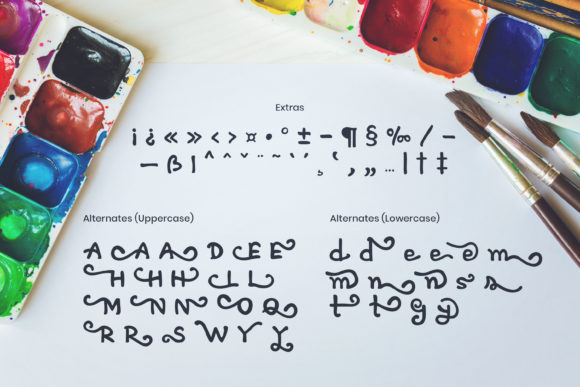 Extras
¡ ¿ « » < > ¤ • ° ± – ¶ § ‰ / –
— ß | ^ ˆ ˘ ¨ ~ ` ´ ¸ ‘ ‚ „ … | † ‡
Alternates (Uppercase)
A A A A D E E E
H H H L L
M N N O Q
R R S W Y Y
Alternates (Lowercase)
d d e e e m
m n n s s
t t g g